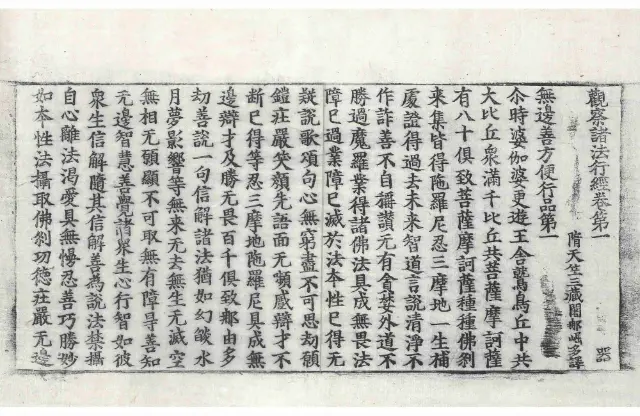 觀察諸法行經卷第一
隋天竺三藏闍郍崛多譯 器
無邊善方便行品第一
尒時婆伽婆更遊王舍鷲鳥丘中共
大比丘衆滿千比丘共菩薩摩訶薩
有八十俱致菩薩摩訶薩種種佛刹
來集皆得陁羅尼忍三摩地一生補
處證得過去未來智道言說清淨不
作詐善不自稱讚元有貪婪外道不
勝過魔羅業得諸佛法具成無畏法
障已過業障已滅於法本性已得无
疑說歌頌句心無窮盡不可思劫願
鎧莊嚴笑顏先語面无頻慼辯才不
断已得等忍三摩地陁羅尼具成無
邊辯才及勝无畏百千俱致郍由多
劫善說一句信解諸法猶如幻燄水
月夢影響等無來无去無生无滅空
無相无願顯不可取無有障㝵善知
无邊智慧善覺諸衆生心行智如彼
衆生信解隨其信解善為說法禁攝
自心離法渴愛具無慢忍善巧勝妙
如本性法攝取佛刹功德莊嚴无邊